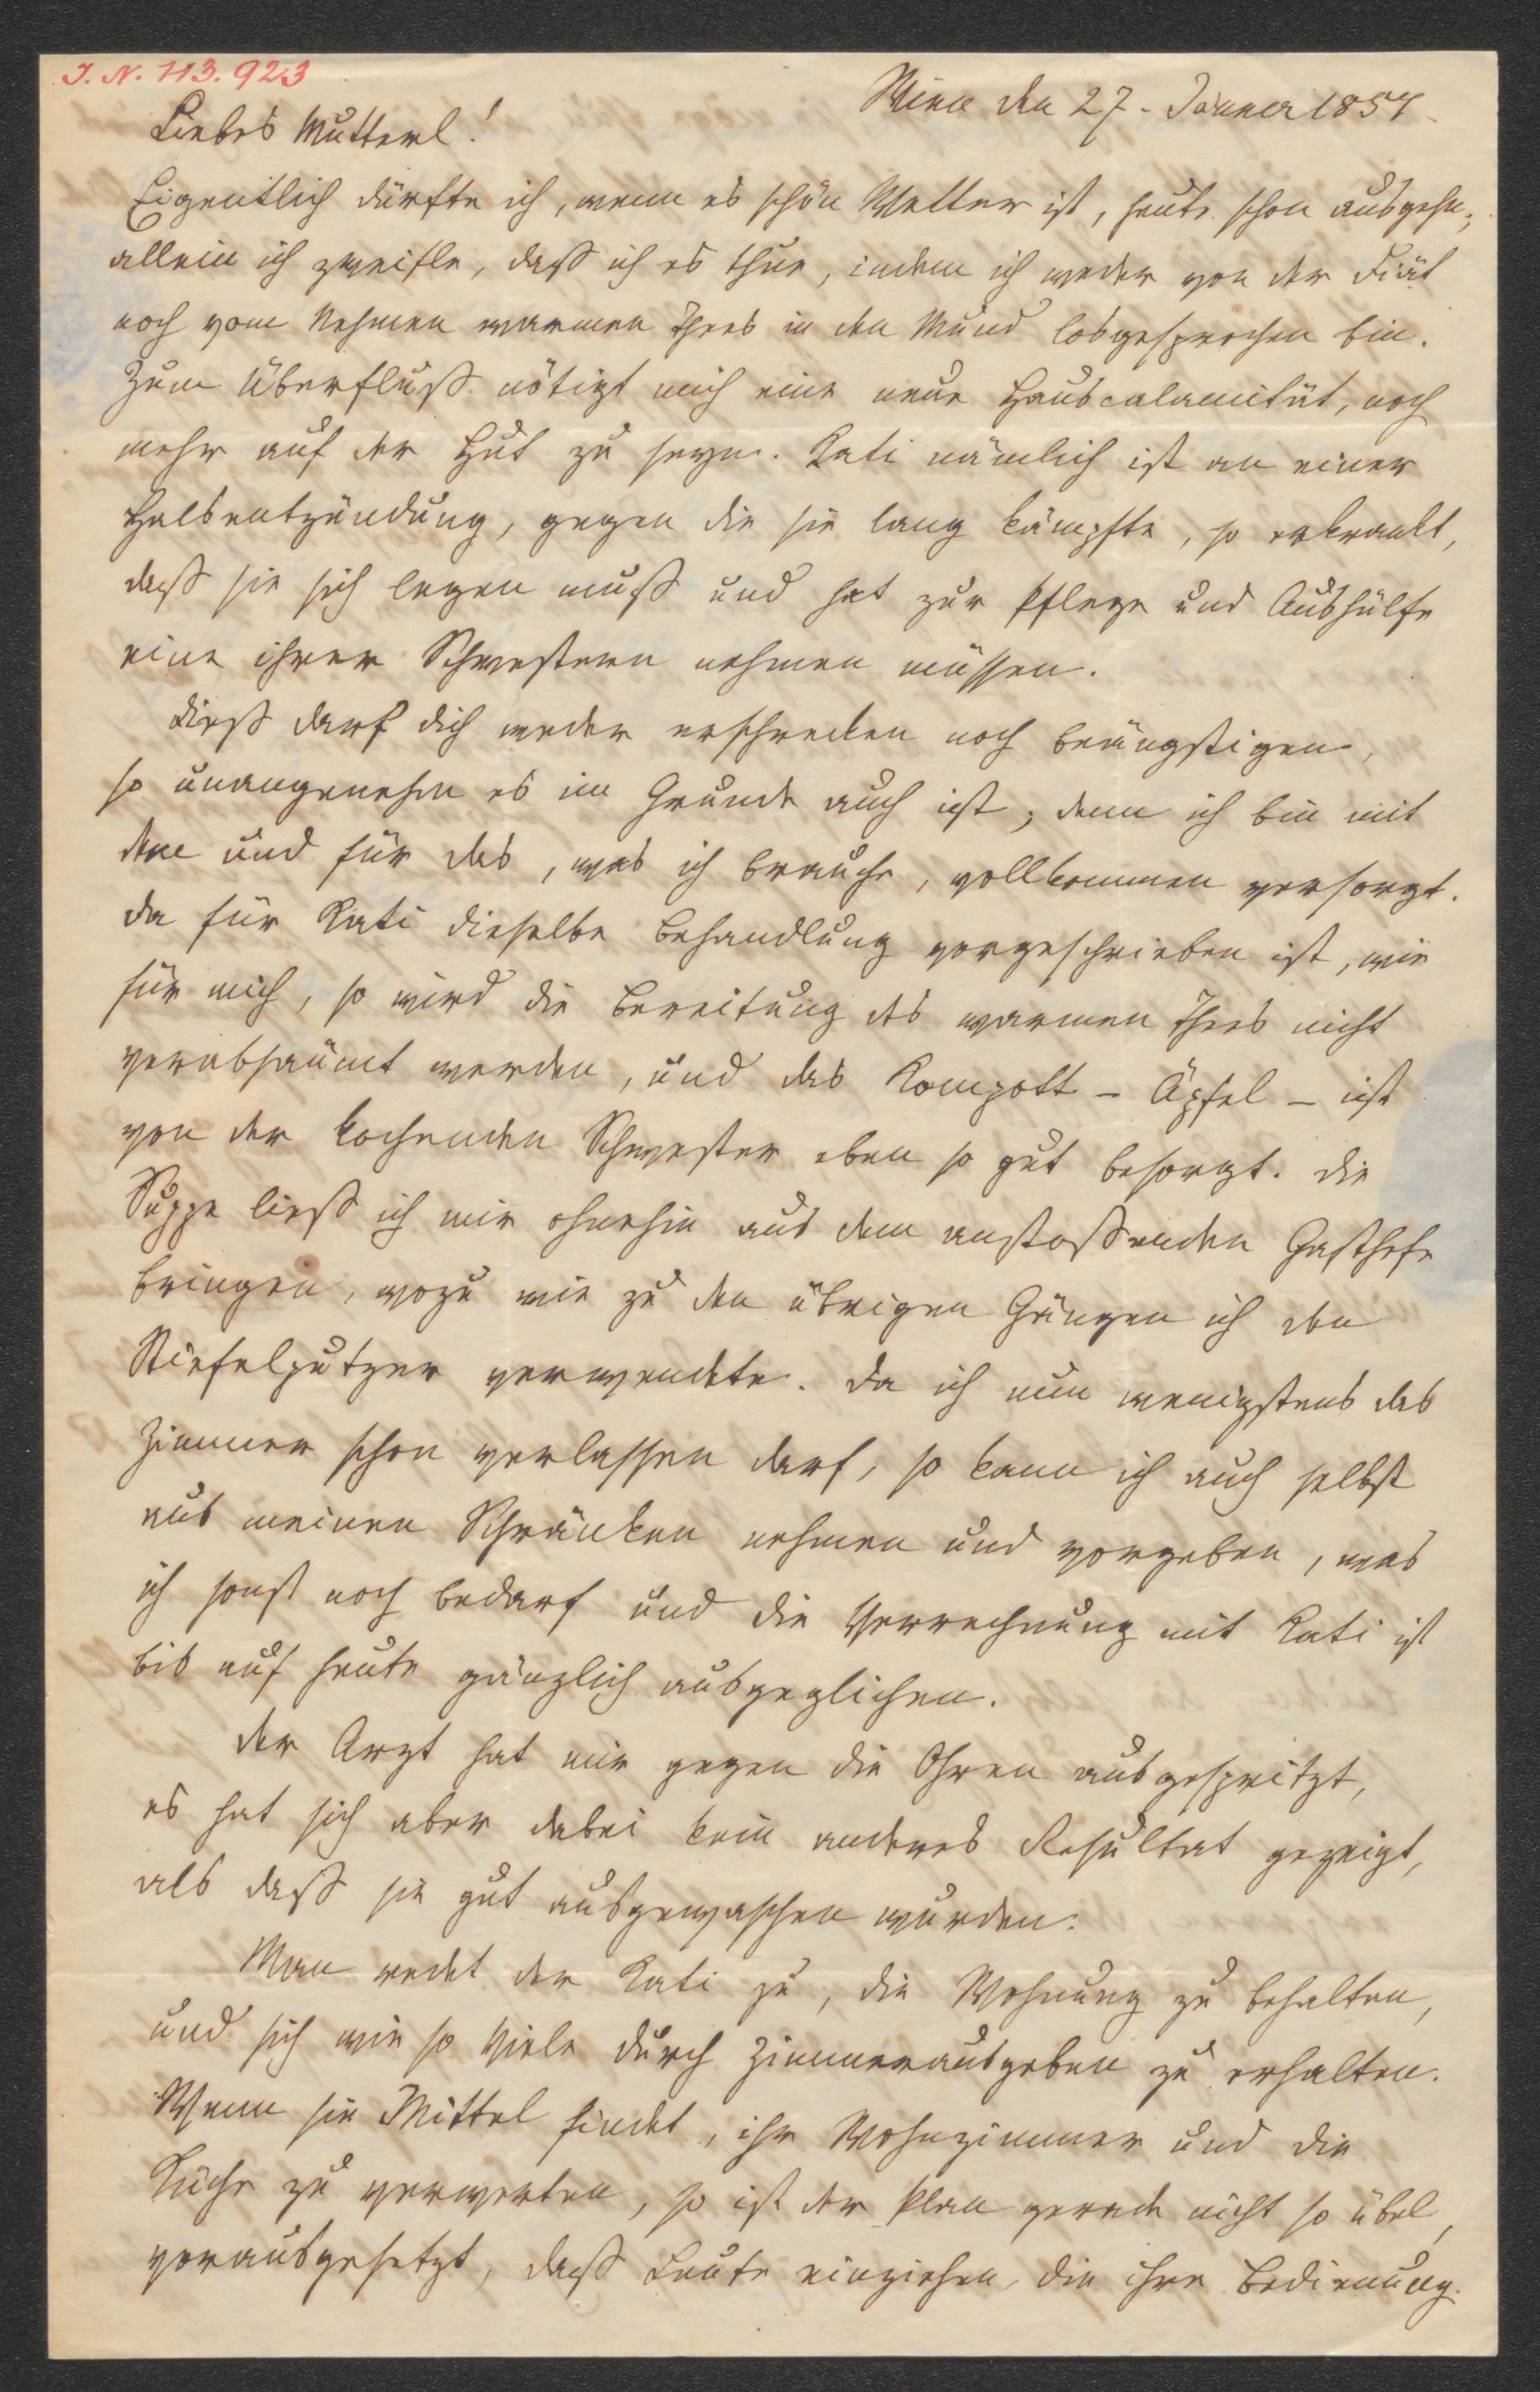 I. N. 113.923
Wien den 27. Jänner 1857
Liebes Mutterl!
Eigentlich dürfte ich, wenn es schön Wetter ist, heute schon ausgehn;
allein ich zweifle, daß ich es thue, indem ich weder von der Diät
noch vom Nehmen warmen Thees in den Mund losgesprochen bin.
Zum Überfluß nötigt mich eine neue Hauscalamität, noch
mehr auf der Hut zu seyn. Kati nämlich ist an einer
Halsentzündung, gegen die sie lang kämpfte, so erkrankt,
daß sie sich legen muß und hat zur Pflege und Aushülfe
eine ihrer Schwestern nehmen müssen.
Dieß darf dich weder erschrecken noch beängstigen,
so unangenehm es im Grunde auch ist; denn ich bin mit
dem und für das, was ich brauche, vollkommen versorgt.
Da für Kati dieselbe Behandlung vorgeschrieben ist, wie
für mich, so wird die Bereitung des warmen Thees nicht
verabsäumt werden, und das Kompott - Äpfel - ist
von der kochenden Schwester eben so gut besorgt. Die
Suppe ließ ich mir ohnehin aus dem anstoßenden Gasthofe
bringen, wozu wie zu den übrigen Gängen ich den
Stiefelputzer verwendete. Da ich nun wenigstens das
Zimmer schon verlassen darf, so kann ich auch selbst
aus meinen Schränken nehmen und vorgeben, was
ich sonst noch bedarf und die Verrechnung mit Kati ist
bis auf heute gänzlich ausgeglichen.
Der Arzt hat mir gegen die Ohren ausgespritzt,
es hat sich aber dabei kein anderes Resultat gezeigt,
als daß sie gut ausgewaschen wurden.
Man redet der Kati zu, die Wohnung zu behalten,
und sich wie so Viele durch Zimmerausgeben zu erhalten.
Wenn sie Mittel findet, ihr Wohnzimmer und die
Küche zu verwerten, so ist der Plan gerade nicht so übel,
vorausgesetzt, daß Leute einziehen, die ihre Bedienung